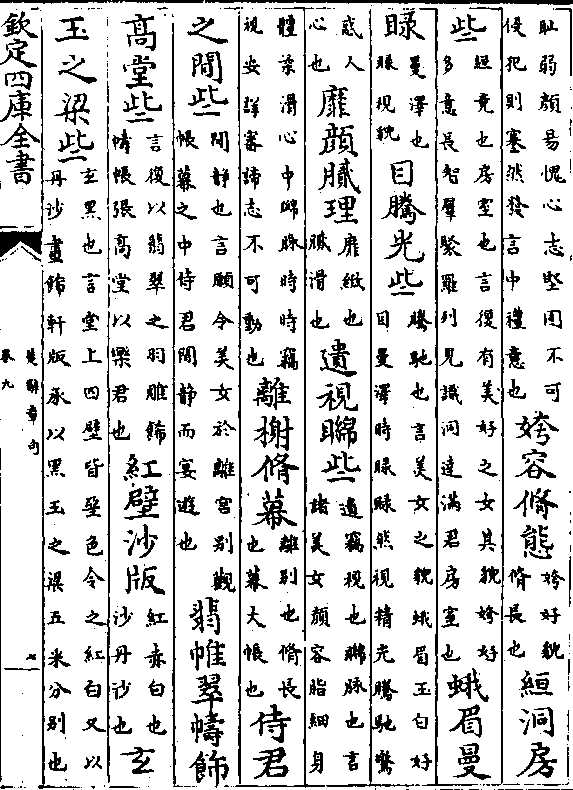 耻弱顔易愧心志堅固不可侵犯則蹇然發言中禮意也姱容脩態姱好貌脩長也絙洞房
些絙竟也房室也言復有美好之女其貌姱好多意長智羣聚羅列見識洞達滿君房室也蛾眉曼
睩曼澤也睩視貌目騰光些騰馳也言美女之貌蛾眉玉白好目曼澤時睩睩然視精光騰馳驚
惑人心也靡顔膩理靡緻也膩滑也遺視矊些遺竊視也矊脈也言諸美女顔容脂細身
體柔滑心中矊脈時時竊視安詳審諦志不可動也離榭脩幕離别也脩長也幕大帳也侍君
之閒些閒静也言願令美女於離宮别觀帳幕之中侍君閒静而宴遊也翡帷翠幬飾
高堂些言復以翡翠之羽雕飾幬帳張高堂以樂君也紅壁沙版紅赤白也沙丹沙也玄
玉之梁些玄黑也言堂上四壁皆堊色令之紅白又以丹沙畫飾軒版承以黑玉之梁五采分别也
欽定四庫全書
楚辭章句
卷九
七